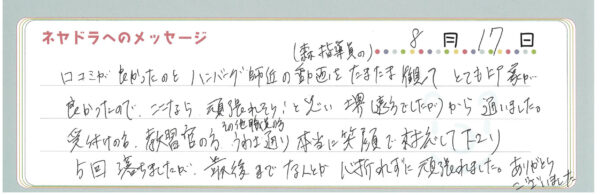 ネヤドラへのメッセージ
8月17日
(森指導員の)
口コミが良かったのと ハンバーグ師匠の動画をたまたま観て とても印象が
良かったので、ここなら 頑張れそう!と思い 堺(遠うでしたが)から 通いました。
その他職員の方
受付の方、教習官の方、うわさ通り 本当に笑顔で 対応して下さい
5回 落ちましたが、最後まで なんとか 心折れずに 頑張れました。ありがとう
ございました